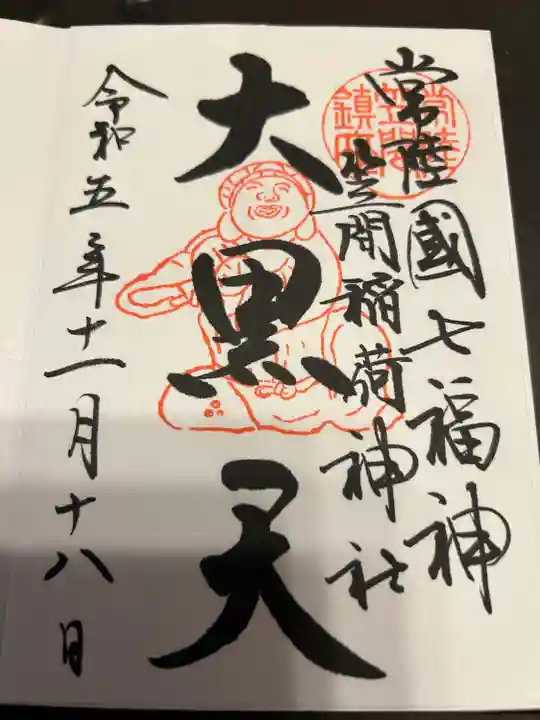 常陸國七福神
笠間稲荷神社
大黒天
令和五年十一月十八日